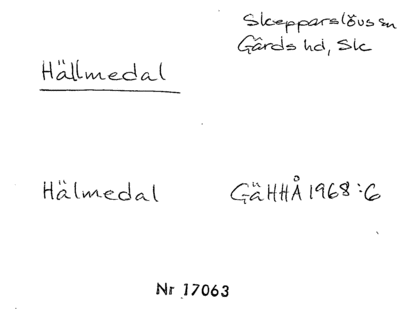 Skepparslövs sn
Gärds hd, Sk
Hällmedal
Hälmedal GäHHÅ 1968:6
Nr 17063